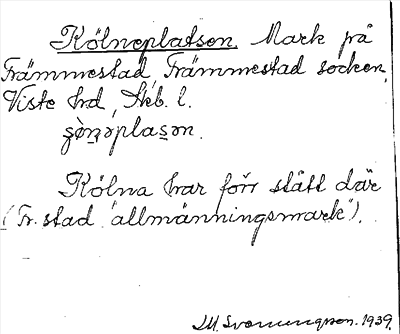 Kölneplatsen. Mark på
Främmestad, Främmestad socken,
Viste hrd, Skb. l.
Kölna har förr stått där
(Fr. stad "allmänningsmark").
J. M. Svenungsson. 1939.